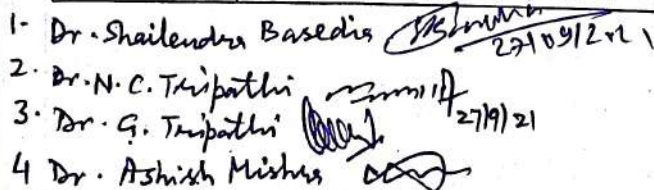 1- Dr. Shailendra Basedia 27/09/2021
2. Dr. N. C. Tripathi 27/9/21
3. Dr. G. Tripathi
4 Dr. Ashish Mishra